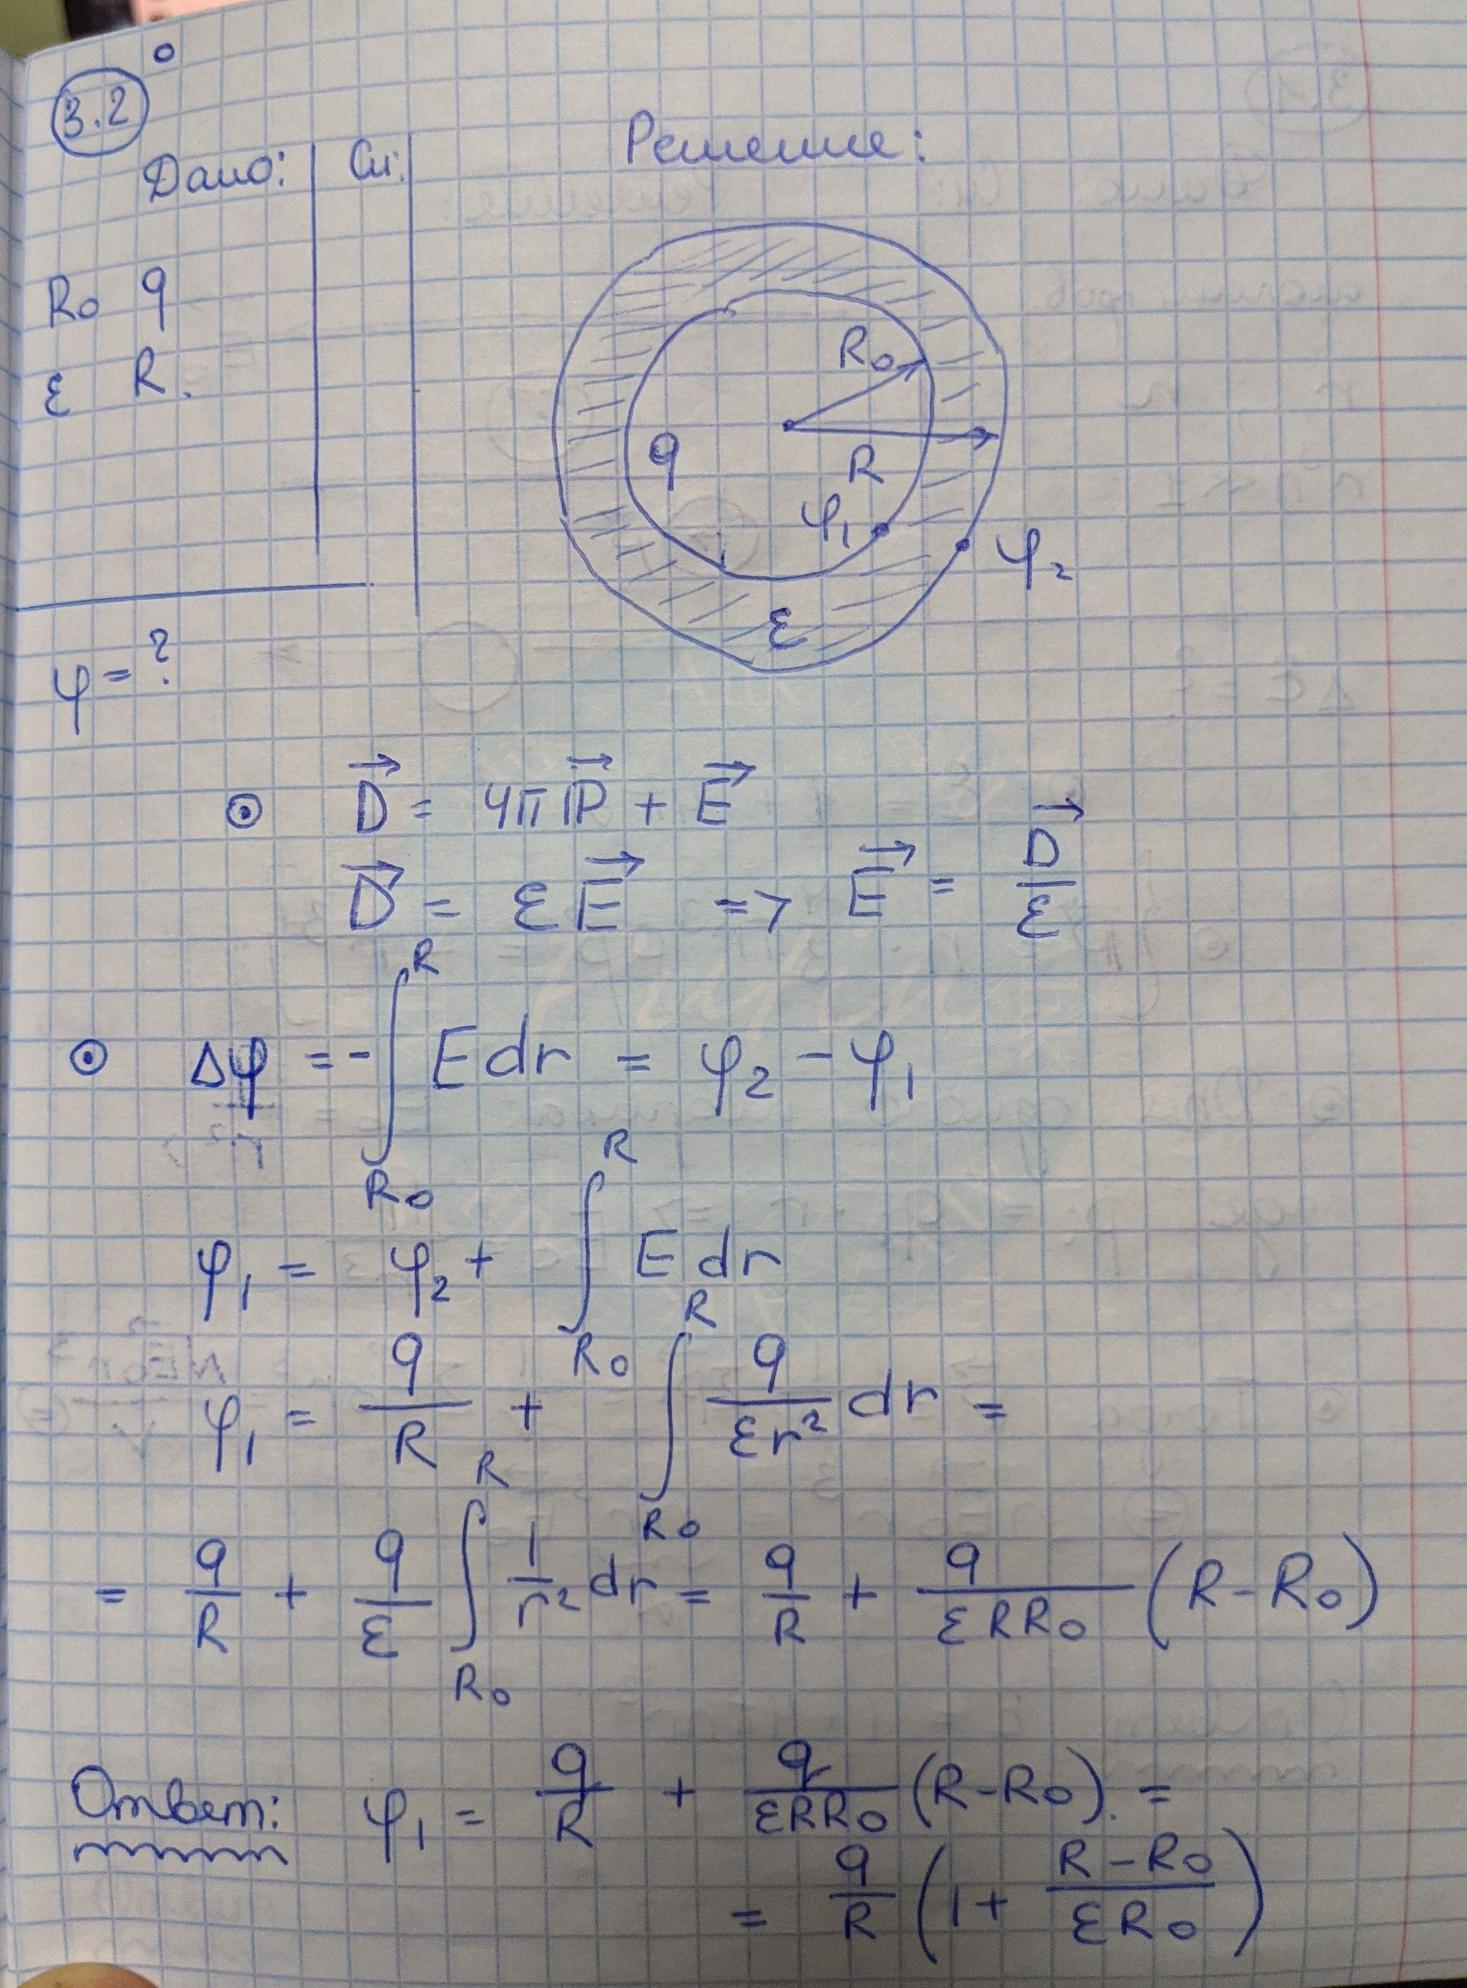 3.2
Дано: Си: Решение:
R₀ q
ε R.
φ = ?
R₀
q R
φ₁
φ₂
ε
⊙ D⃗ = 4πP⃗ + E⃗
D⃗ = εE⃗ => E⃗ = D⃗/ε
⊙ Δφ = -∫_{R₀}^{R} E dr = φ₂ - φ₁
φ₁ = φ₂ + ∫_{R₀}^{R} E dr
φ₁ = q/R + ∫_{R₀}^{R} q/(εr²) dr =
= q/R + q/ε ∫_{R₀}^{R} 1/r² dr = q/R + q/(εRR₀) (R-R₀)
Ответ: φ₁ = q/R + q/(εRR₀) (R-R₀). =
= q/R (1 + (R-R₀)/(εR₀))